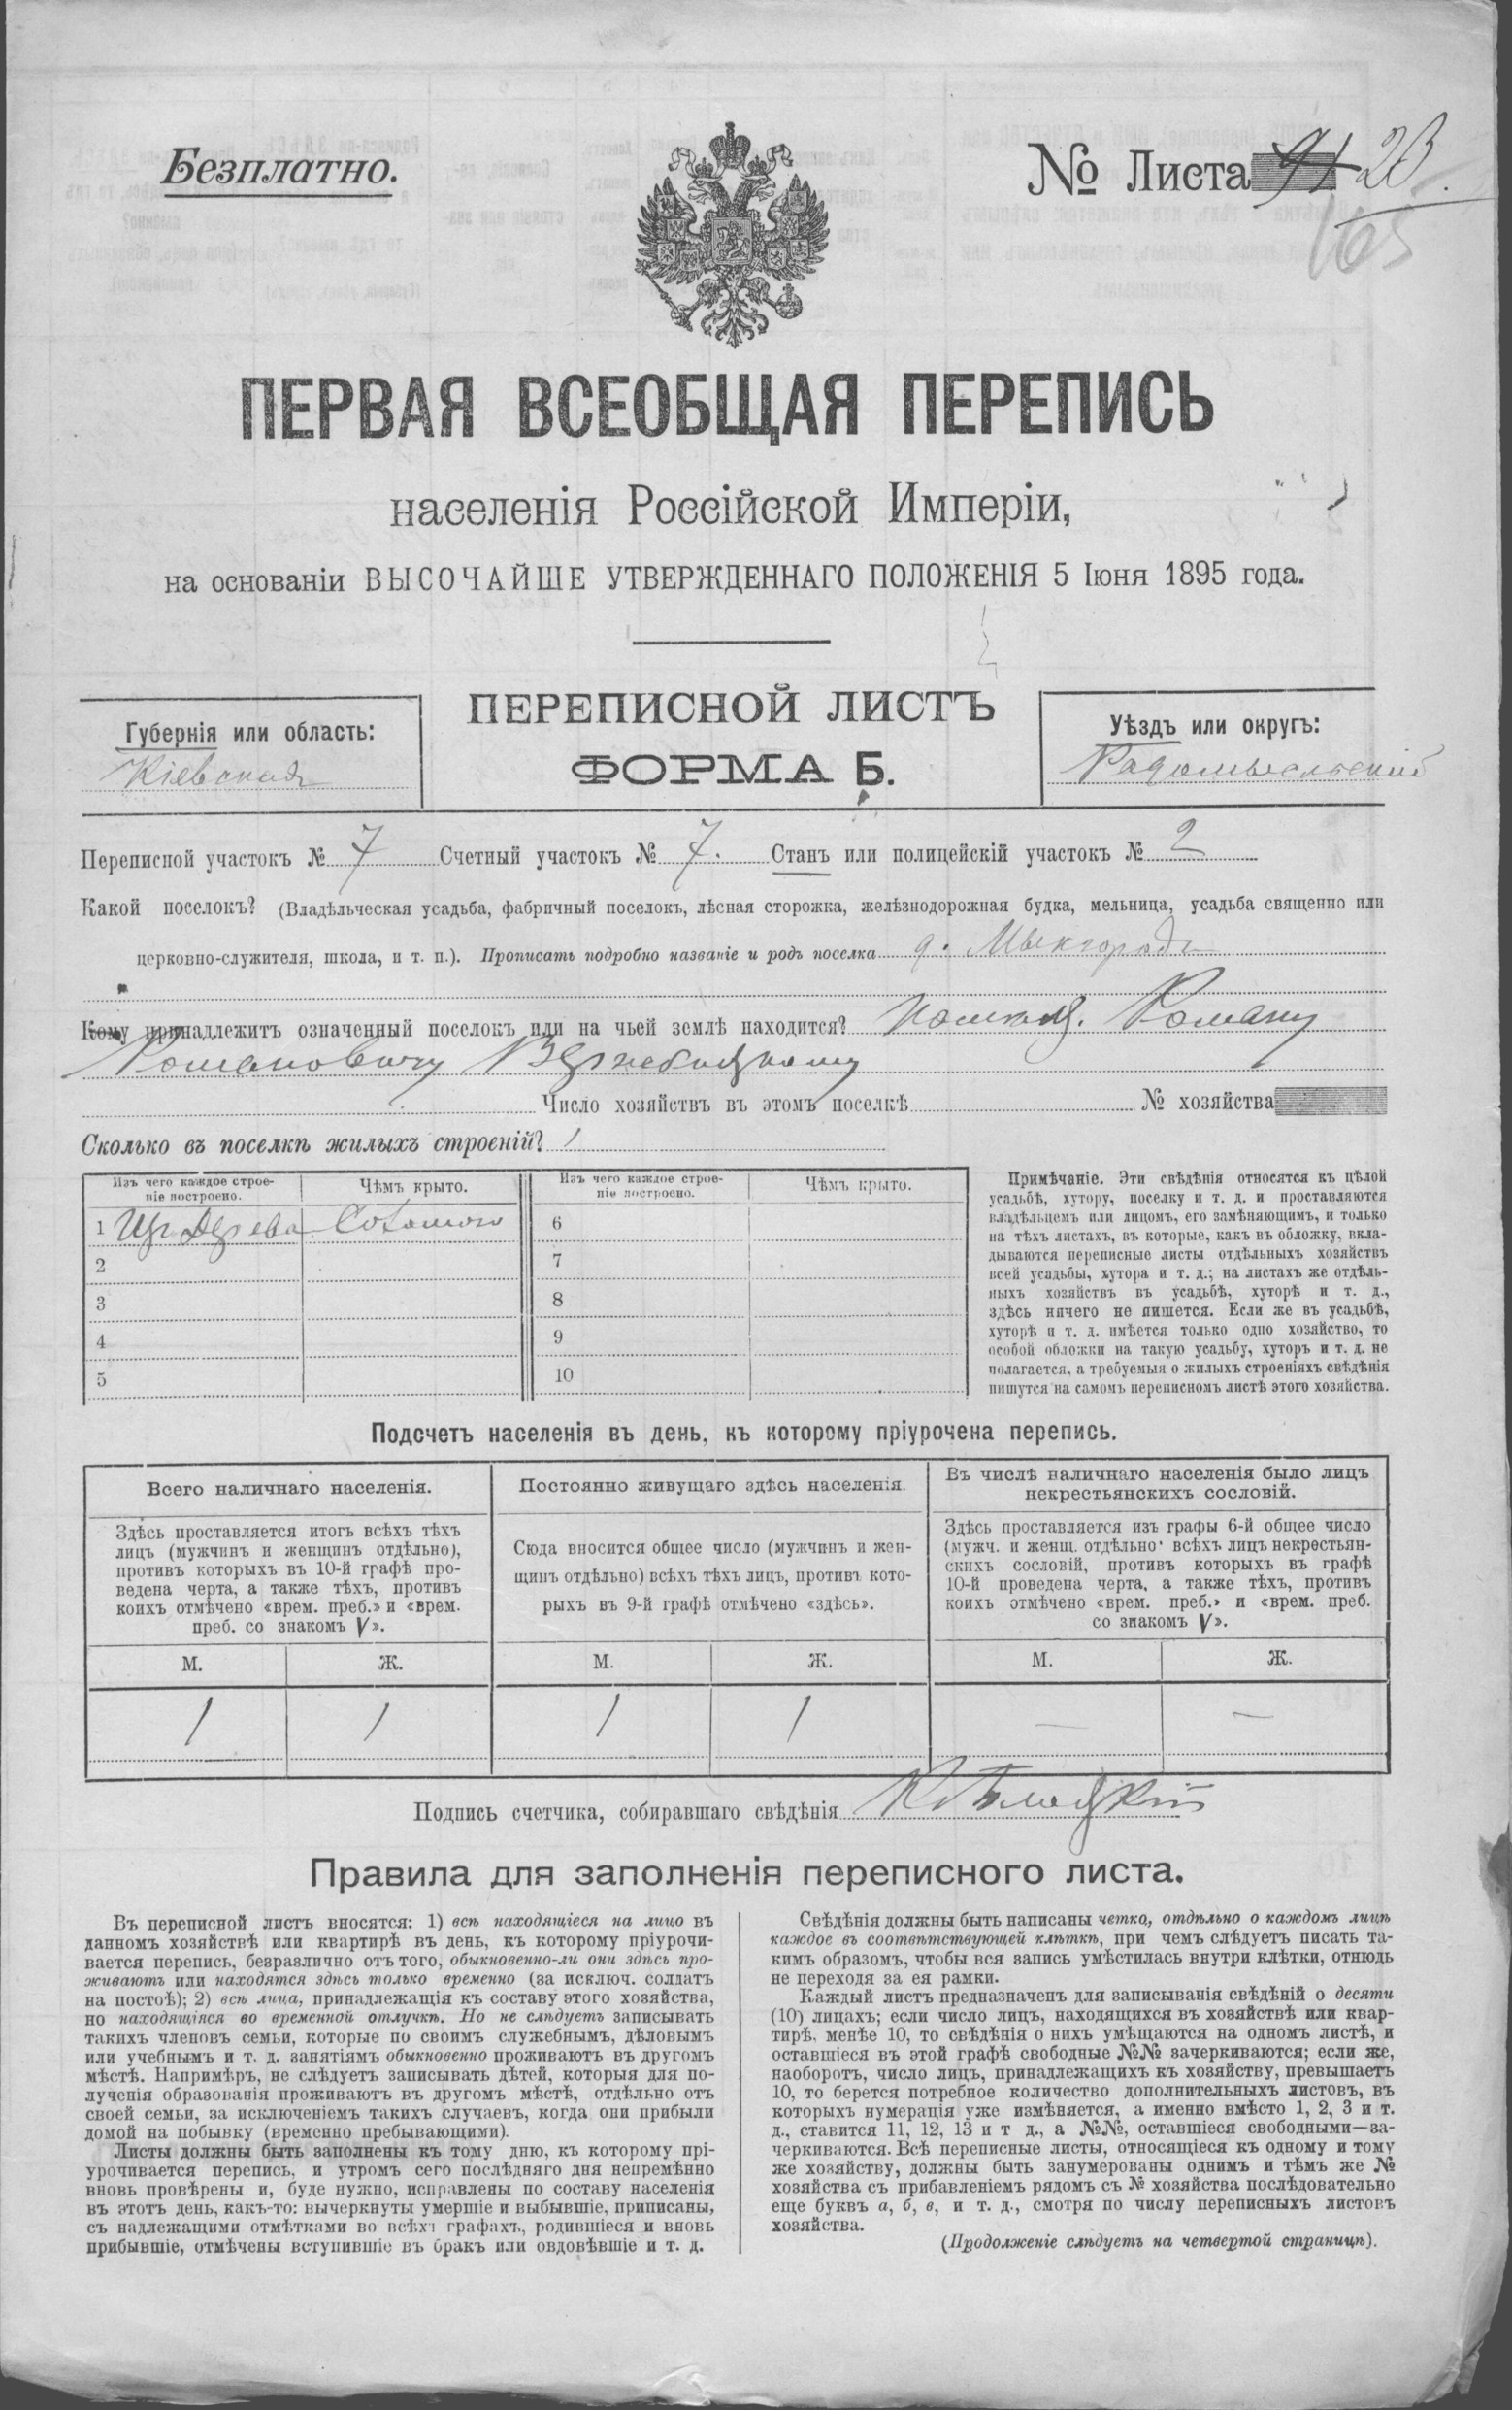 Безплатно.
№ Листа 91 23.
165
ПЕРВАЯ ВСЕОБЩАЯ ПЕРЕПИСЬ
населенія Россійской Имперіи,
на основаніи ВЫСОЧАЙШЕ УТВЕРЖДЕННАГО ПОЛОЖЕНІЯ 5 Іюня 1895 года.
ПЕРЕПИСНОЙ ЛИСТЪ
ФОРМА Б.
Губернія или область:
Кіевская
Уѣздъ или округъ:
Радомысльскій
Переписной участокъ № 7 Счетный участокъ № 7. Станъ или полицейскій участокъ № 2
Какой поселокъ? (Владѣльческая усадьба, фабричный поселокъ, лѣсная сторожка, желѣзнодорожная будка, мельница, усадьба священно или
церковно-служителя, школа, и т. п.). Прописать подробно названіе и родъ поселка д.
Кому принадлежитъ означенный поселокъ или на чьей землѣ находится? Роману
Романовичу
Число хозяйствъ въ этомъ поселкѣ № хозяйства
Сколько въ поселкѣ жилыхъ строеній? 1
Изъ чего каждое строе-
ніе построено.
Чѣмъ крыто.
Изъ чего каждое строе-
ніе построено.
Чѣмъ крыто.
1 Изъ дерева Соломою
6
2
7
3
8
4
9
5
10
Примѣчаніе. Эти свѣдѣнія относятся къ цѣлой
усадьбѣ, хутору, поселку и т. д. и проставляются
владѣльцемъ или лицомъ, его замѣняющимъ, и только
на тѣхъ листахъ, въ которые, какъ въ обложку, вкла-
дываются переписные листы отдѣльныхъ хозяйствъ
всей усадьбы, хутора и т. д.; на листахъ же отдѣль-
ныхъ хозяйствъ въ усадьбѣ, хуторѣ и т. д.,
здѣсь ничего не пишется. Если же въ усадьбѣ,
хуторѣ и т. д. имѣется только одно хозяйство, то
особой обложки на такую усадьбу, хуторъ и т. д. не
полагается, а требуемыя о жилыхъ строеніяхъ свѣдѣнія
пишутся на самомъ переписномъ листѣ этого хозяйства.
Подсчетъ населенія въ день, къ которому пріурочена перепись.
Всего наличнаго населенія.
Здѣсь проставляется итогъ всѣхъ тѣхъ
лицъ (мужчинъ и женщинъ отдѣльно),
противъ которыхъ въ 10-й графѣ про-
ведена черта, а также тѣхъ, противъ
коихъ отмѣчено «врем. преб.» и «врем.
преб. со знакомъ V».
Постоянно живущаго здѣсь населенія.
Сюда вносится общее число (мужчинъ и жен-
щинъ отдѣльно) всѣхъ тѣхъ лицъ, противъ кото-
рыхъ въ 9-й графѣ отмѣчено «здѣсь».
Въ числѣ наличнаго населенія было лицъ
некрестьянскихъ сословій.
Здѣсь проставляется изъ графы 6-й общее число
(мужч. и женщ. отдѣльно) всѣхъ лицъ некрестьян-
скихъ сословій, противъ которыхъ въ графѣ
10-й проведена черта, а также тѣхъ, противъ
коихъ отмѣчено «врем. преб.» и «врем. преб.
со знакомъ V».
М. Ж. М. Ж. М. Ж.
1 1 1 1 — —
Подпись счетчика, собиравшаго свѣдѣнія
Правила для заполненія переписного листа.
Въ переписной листъ вносятся: 1) всѣ находящіеся на лицо въ
данномъ хозяйствѣ или квартирѣ въ день, къ которому пріурочи-
вается перепись, безразлично отъ того, обыкновенно-ли они здѣсь про-
живаютъ или находятся здѣсь только временно (за исключ. солдатъ
на постоѣ); 2) всѣ лица, принадлежащія къ составу этого хозяйства,
но находящіяся во временной отлучкѣ. Но не слѣдуетъ записывать
такихъ членовъ семьи, которые по своимъ служебнымъ, дѣловымъ
или учебнымъ и т. д. занятіямъ обыкновенно проживаютъ въ другомъ
мѣстѣ. Напримѣръ, не слѣдуетъ записывать дѣтей, которыя для по-
лученія образованія проживаютъ въ другомъ мѣстѣ, отдѣльно отъ
своей семьи, за исключеніемъ такихъ случаевъ, когда они прибыли
домой на побывку (временно пребывающими).
Листы должны быть заполнены къ тому дню, къ которому прі-
урочивается перепись, и утромъ сего послѣдняго дня непремѣнно
вновь провѣрены и, буде нужно, исправлены по составу населенія
въ этотъ день, какъ-то: вычеркнуты умершіе и выбывшіе, приписаны,
съ надлежащими отмѣтками во всѣхъ графахъ, родившіеся и вновь
прибывшіе, отмѣчены вступившіе въ бракъ или овдовѣвшіе и т. д.
Свѣдѣнія должны быть написаны четко, отдѣльно о каждомъ лицѣ
каждое въ соотвѣтствующей клѣткѣ, при чемъ слѣдуетъ писать та-
кимъ образомъ, чтобы вся запись умѣстилась внутри клѣтки, отнюдь
не переходя за ея рамки.
Каждый листъ предназначенъ для записыванія свѣдѣній о десяти
(10) лицахъ; если число лицъ, находящихся въ хозяйствѣ или квар-
тирѣ, менѣе 10, то свѣдѣнія о нихъ умѣщаются на одномъ листѣ, и
оставшіеся въ этой графѣ свободные №№ зачеркиваются; если же,
наоборотъ, число лицъ, принадлежащихъ къ хозяйству, превышаетъ
10, то берется потребное количество дополнительныхъ листовъ, въ
которыхъ нумерація уже измѣняется, а именно вмѣсто 1, 2, 3 и т.
д., ставится 11, 12, 13 и т д., а №№, оставшіеся свободными—за-
черкиваются. Всѣ переписные листы, относящіеся къ одному и тому
же хозяйству, должны быть занумерованы однимъ и тѣмъ же №
хозяйства съ прибавленіемъ рядомъ съ № хозяйства послѣдовательно
еще буквъ а, б, в, и т. д., смотря по числу переписныхъ листовъ
хозяйства.
(Продолженіе слѣдуетъ на четвертой страницѣ).